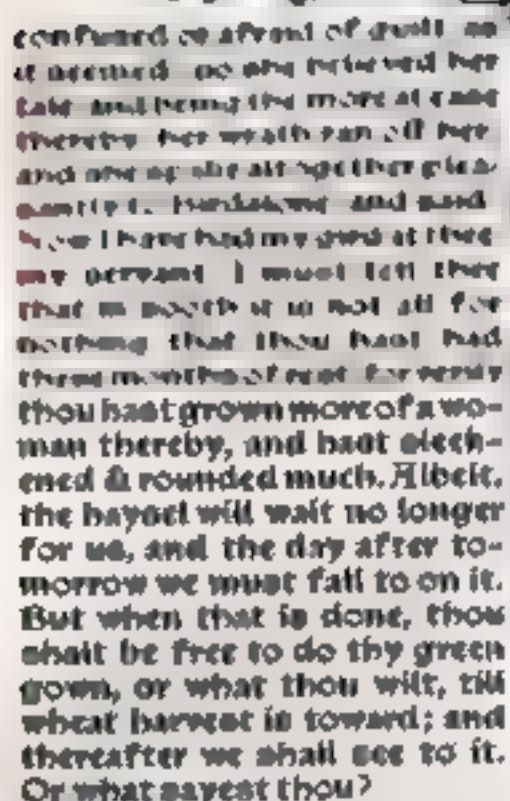 confused or afraid of guilt as
it seemed so she believed her
tale and being the more at ease
thereby her wrath ran off her
and she spake altogether plea-
santly to Birdalone and said
Now I have had my gird at thee
my servant I must tell thee
that in sooth it is not all for
nothing that thou hast had
these months of rest for verily
thou hast grown more of a wo-
man thereby, and hast sleek-
ened & rounded much. Albeit,
the haysel will wait no longer
for us, and the day after to-
morrow we must fall to on it.
But when that is done, thou
shalt be free to do thy green
gown, or what thou wilt, till
wheat harvest is toward; and
thereafter we shall see to it.
Or what sayest thou?